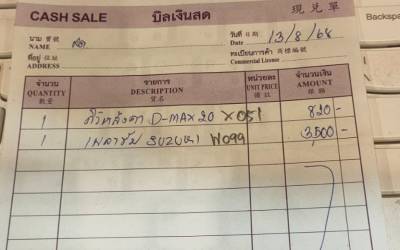 CASH SALE บิลเงินสด 現兌單
Backspa
นาม 寶號
NAME สด
วันที่ 日期
Date 13/8/68
ที่อยู่ 住址
ADDRESS
ทะเบียนการค้า 商標編號
Commercial Licence
จำนวน รายการ หน่วยละ จำนวนเงิน
QUANTITY DESCRIPTION UNIT PRICE AMOUNT
數量 貨名 價以 銀額
1 D-MAX 20 X051 820-
1 เพลาขับ SUZUKI W099 3,500-